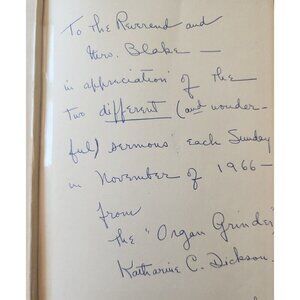 To the Reverend and
Mrs. Blake —
in appreciation of the
two different (and wonder-
ful) sermons each Sunday
in November of 1966 —
from
the "Organ Grinder"
Katharine C. Dickson